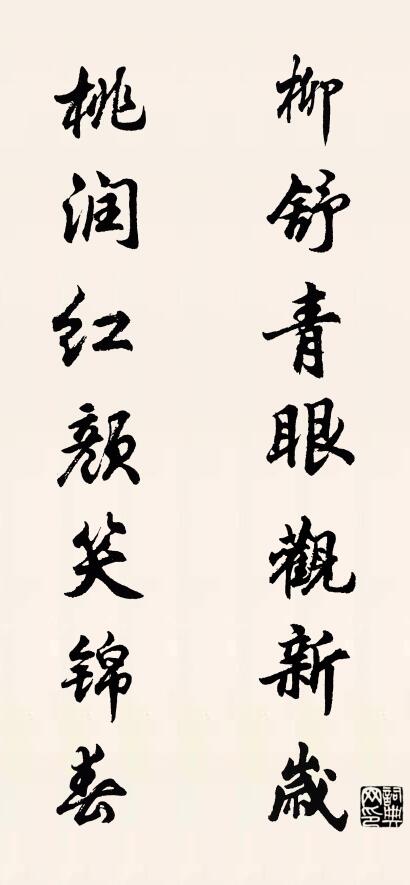 柳舒青眼觀新歲
桃润红颜笑锦春
詞典网印